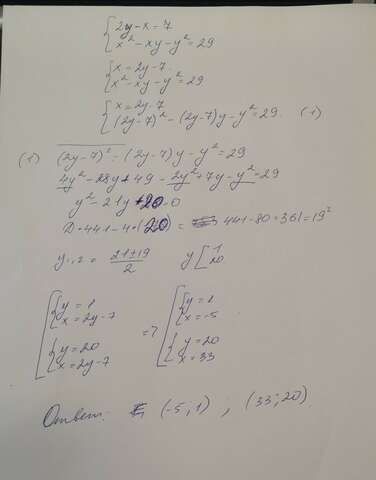 {2y-x=7
{x²-xy-y²=29
{x=2y-7
{x²-xy-y²=29
{x=2y-7
{(2y-7)²-(2y-7)y-y²=29. (1)
(1) (2y-7)²-(2y-7)y-y²=29
4y²-28y+49-2y²+7y-y²=29
y²-21y+20=0
D=441-4·(20)= 441-80=361=19²
y₁,₂= (21±19)/2 y[1 20
[{y=1 {x=2y-7 {y=20 {x=2y-7 => [{y=1 {x=-5 {y=20 {x=33
Ответ: (-5;1) ; (33;20)